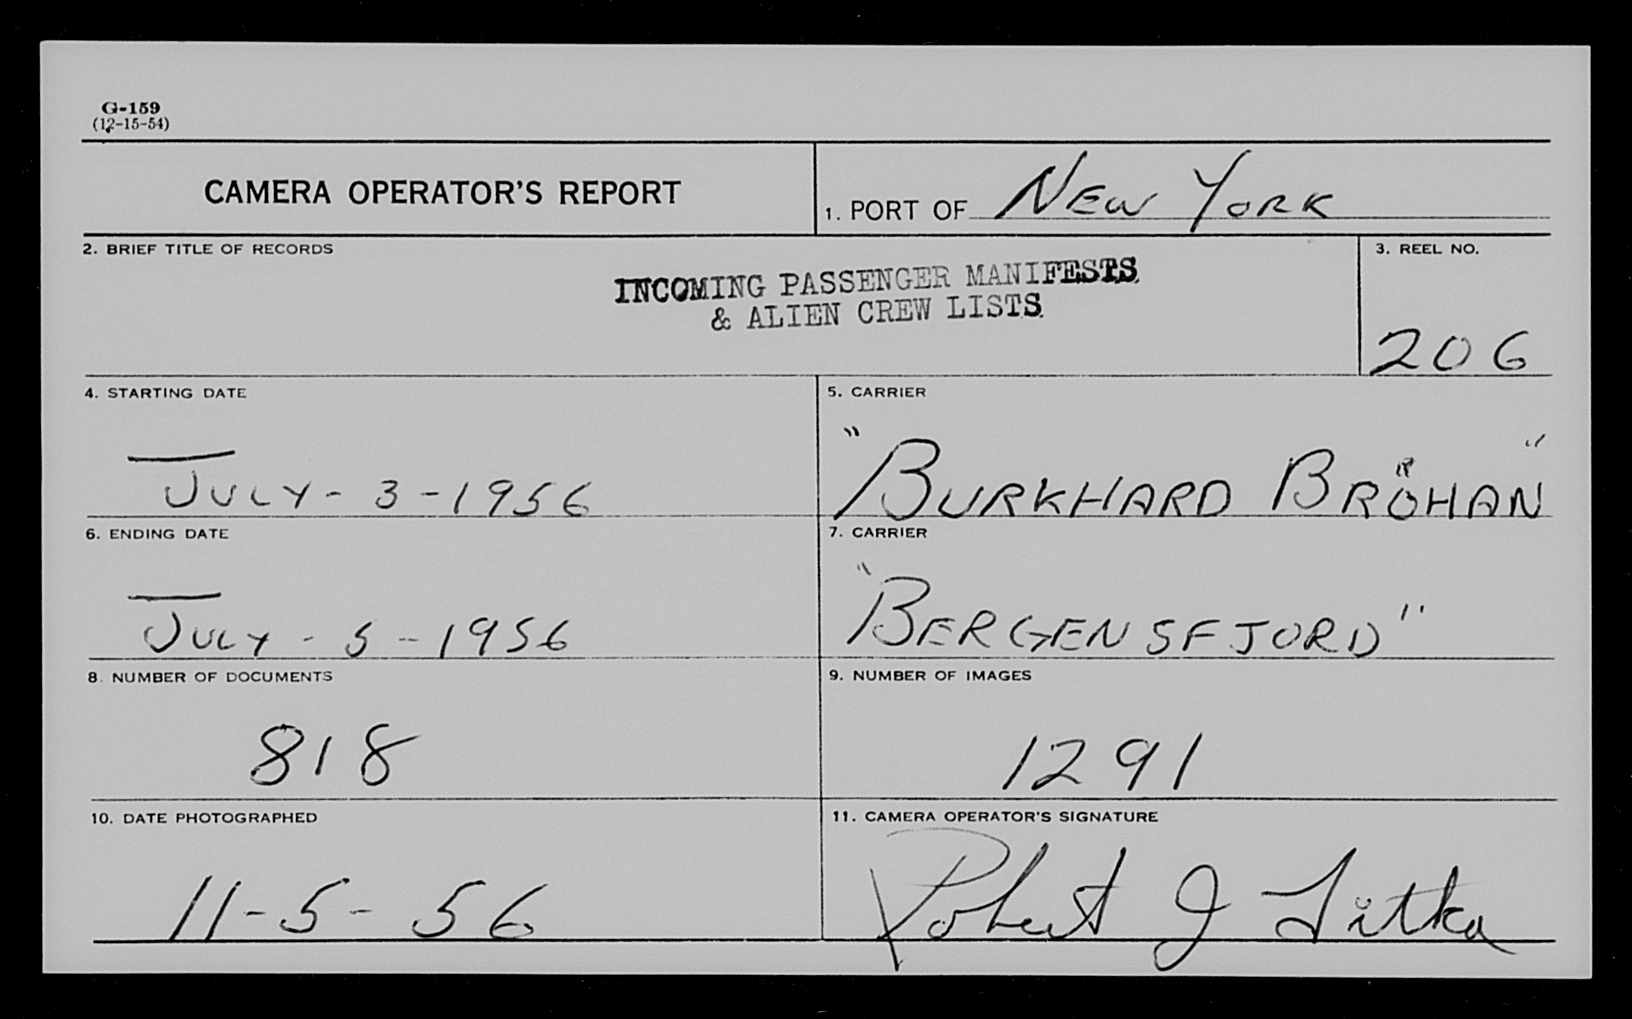 G-159
(12-15-54)
CAMERA OPERATOR'S REPORT
1. PORT OF New York
2. BRIEF TITLE OF RECORDS
INCOMING PASSENGER MANIFESTS
& ALIEN CREW LISTS
3. REEL NO.
206
4. STARTING DATE
JULY-3-1956
5. CARRIER
"BURKHARD BRÖHAN"
6. ENDING DATE
JULY-5-1956
7. CARRIER
"BERGENSFJORD"
8. NUMBER OF DOCUMENTS
818
9. NUMBER OF IMAGES
1291
10. DATE PHOTOGRAPHED
11-5-56
11. CAMERA OPERATOR'S SIGNATURE
Robert J